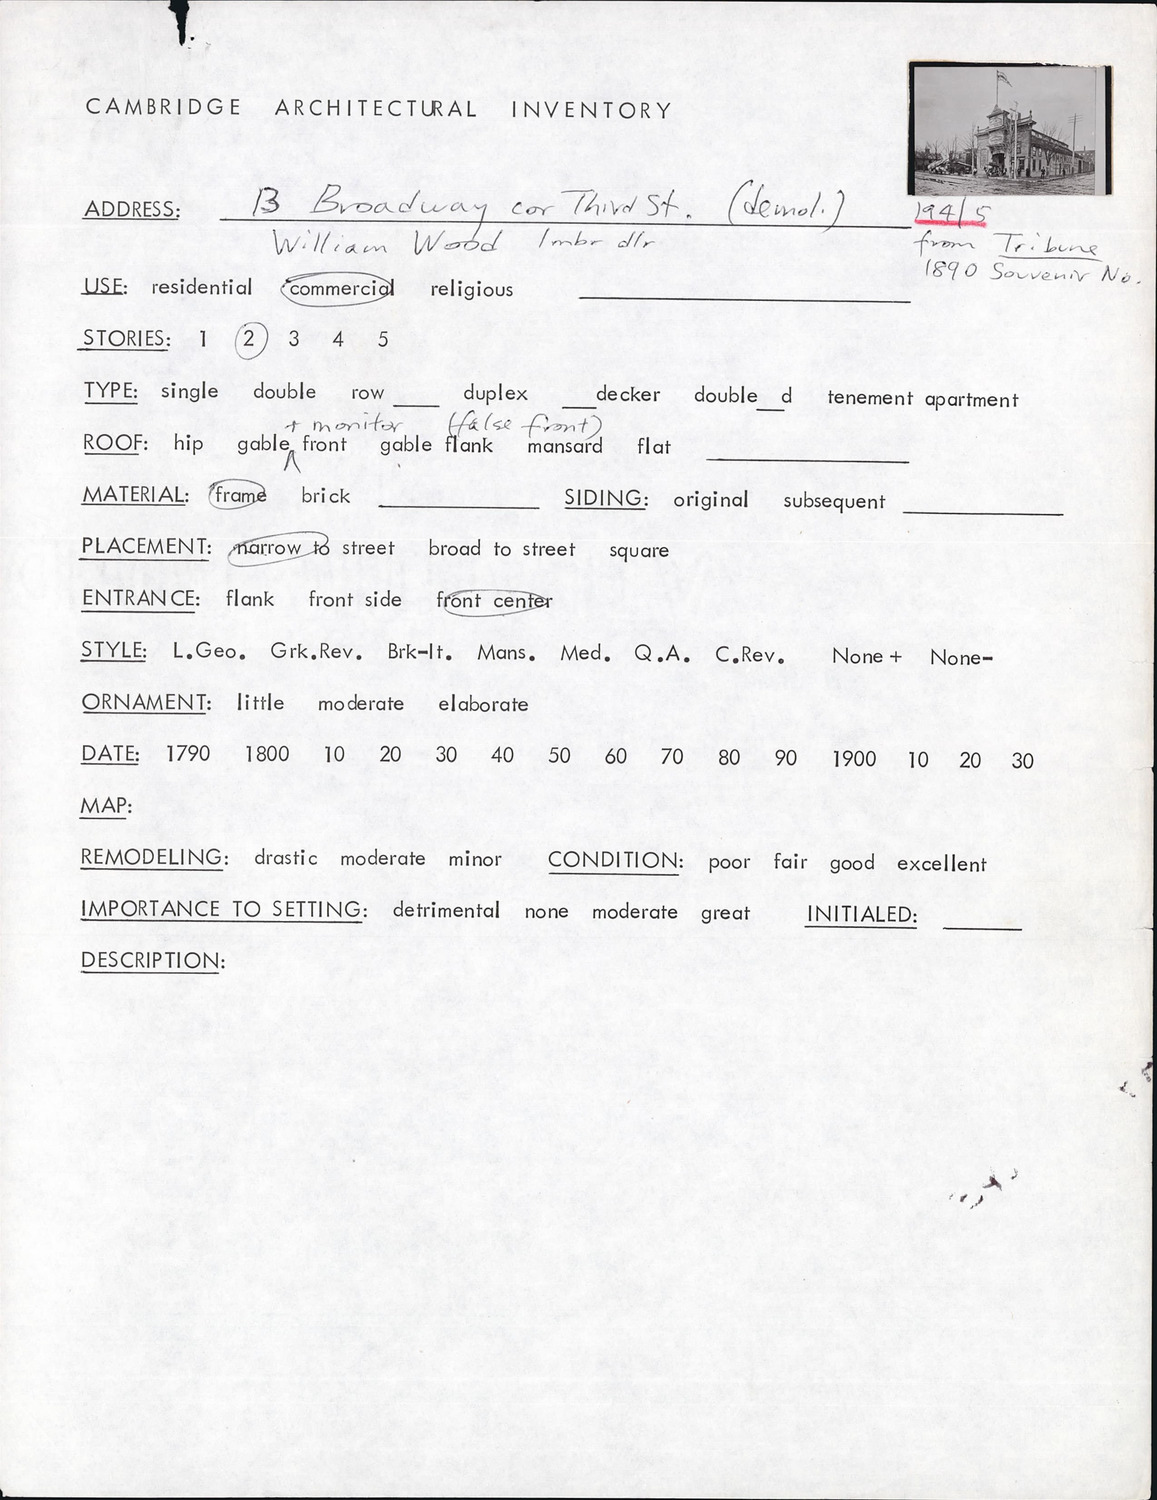 CAMBRIDGE ARCHITECTURAL INVENTORY
ADDRESS: 13 Broadway cor Third St. (demol.)
194/5
William Wood lmbr dlr
from Tribune
1890 Souvenir No.
USE: residential commercial religious
STORIES: 1 2 3 4 5
TYPE: single double row ___ duplex ___decker double__d tenement apartment
+ monitor (false front)
ROOF: hip gable front gable flank mansard flat
MATERIAL: frame brick SIDING: original subsequent
PLACEMENT: narrow to street broad to street square
ENTRANCE: flank front side front center
STYLE: L.Geo. Grk.Rev. Brk-It. Mans. Med. Q.A. C.Rev. None+ None-
ORNAMENT: little moderate elaborate
DATE: 1790 1800 10 20 30 40 50 60 70 80 90 1900 10 20 30
MAP:
REMODELING: drastic moderate minor CONDITION: poor fair good excellent
IMPORTANCE TO SETTING: detrimental none moderate great INITIALED:
DESCRIPTION: